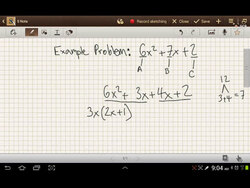 S Note
Record sketching
Example Problem: 6x² + 7x + 2
A B C
12
3+4 = 7
6x² + 3x + 4x + 2
3x(2x+1)
9:04